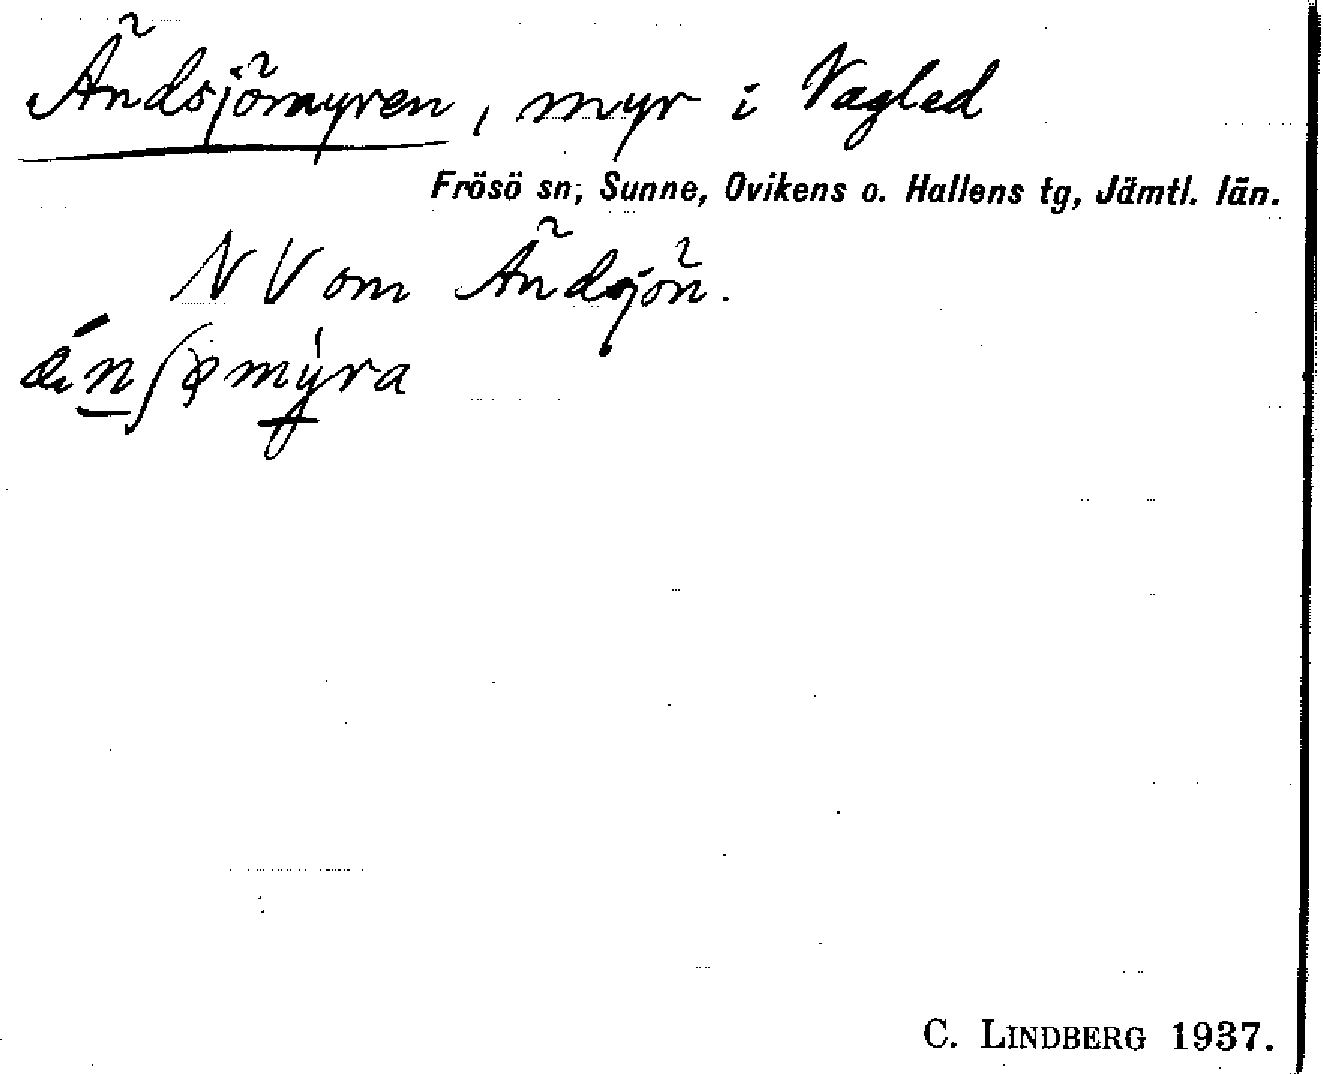 Ändsjömyren, myr i Vagled
Frösö sn; Sunne, Ovikens o. Hallens tg, Jämtl. län.
NV om Ändsjön.
ǽn̲ʃømýra
C. LINDBERG 1937.